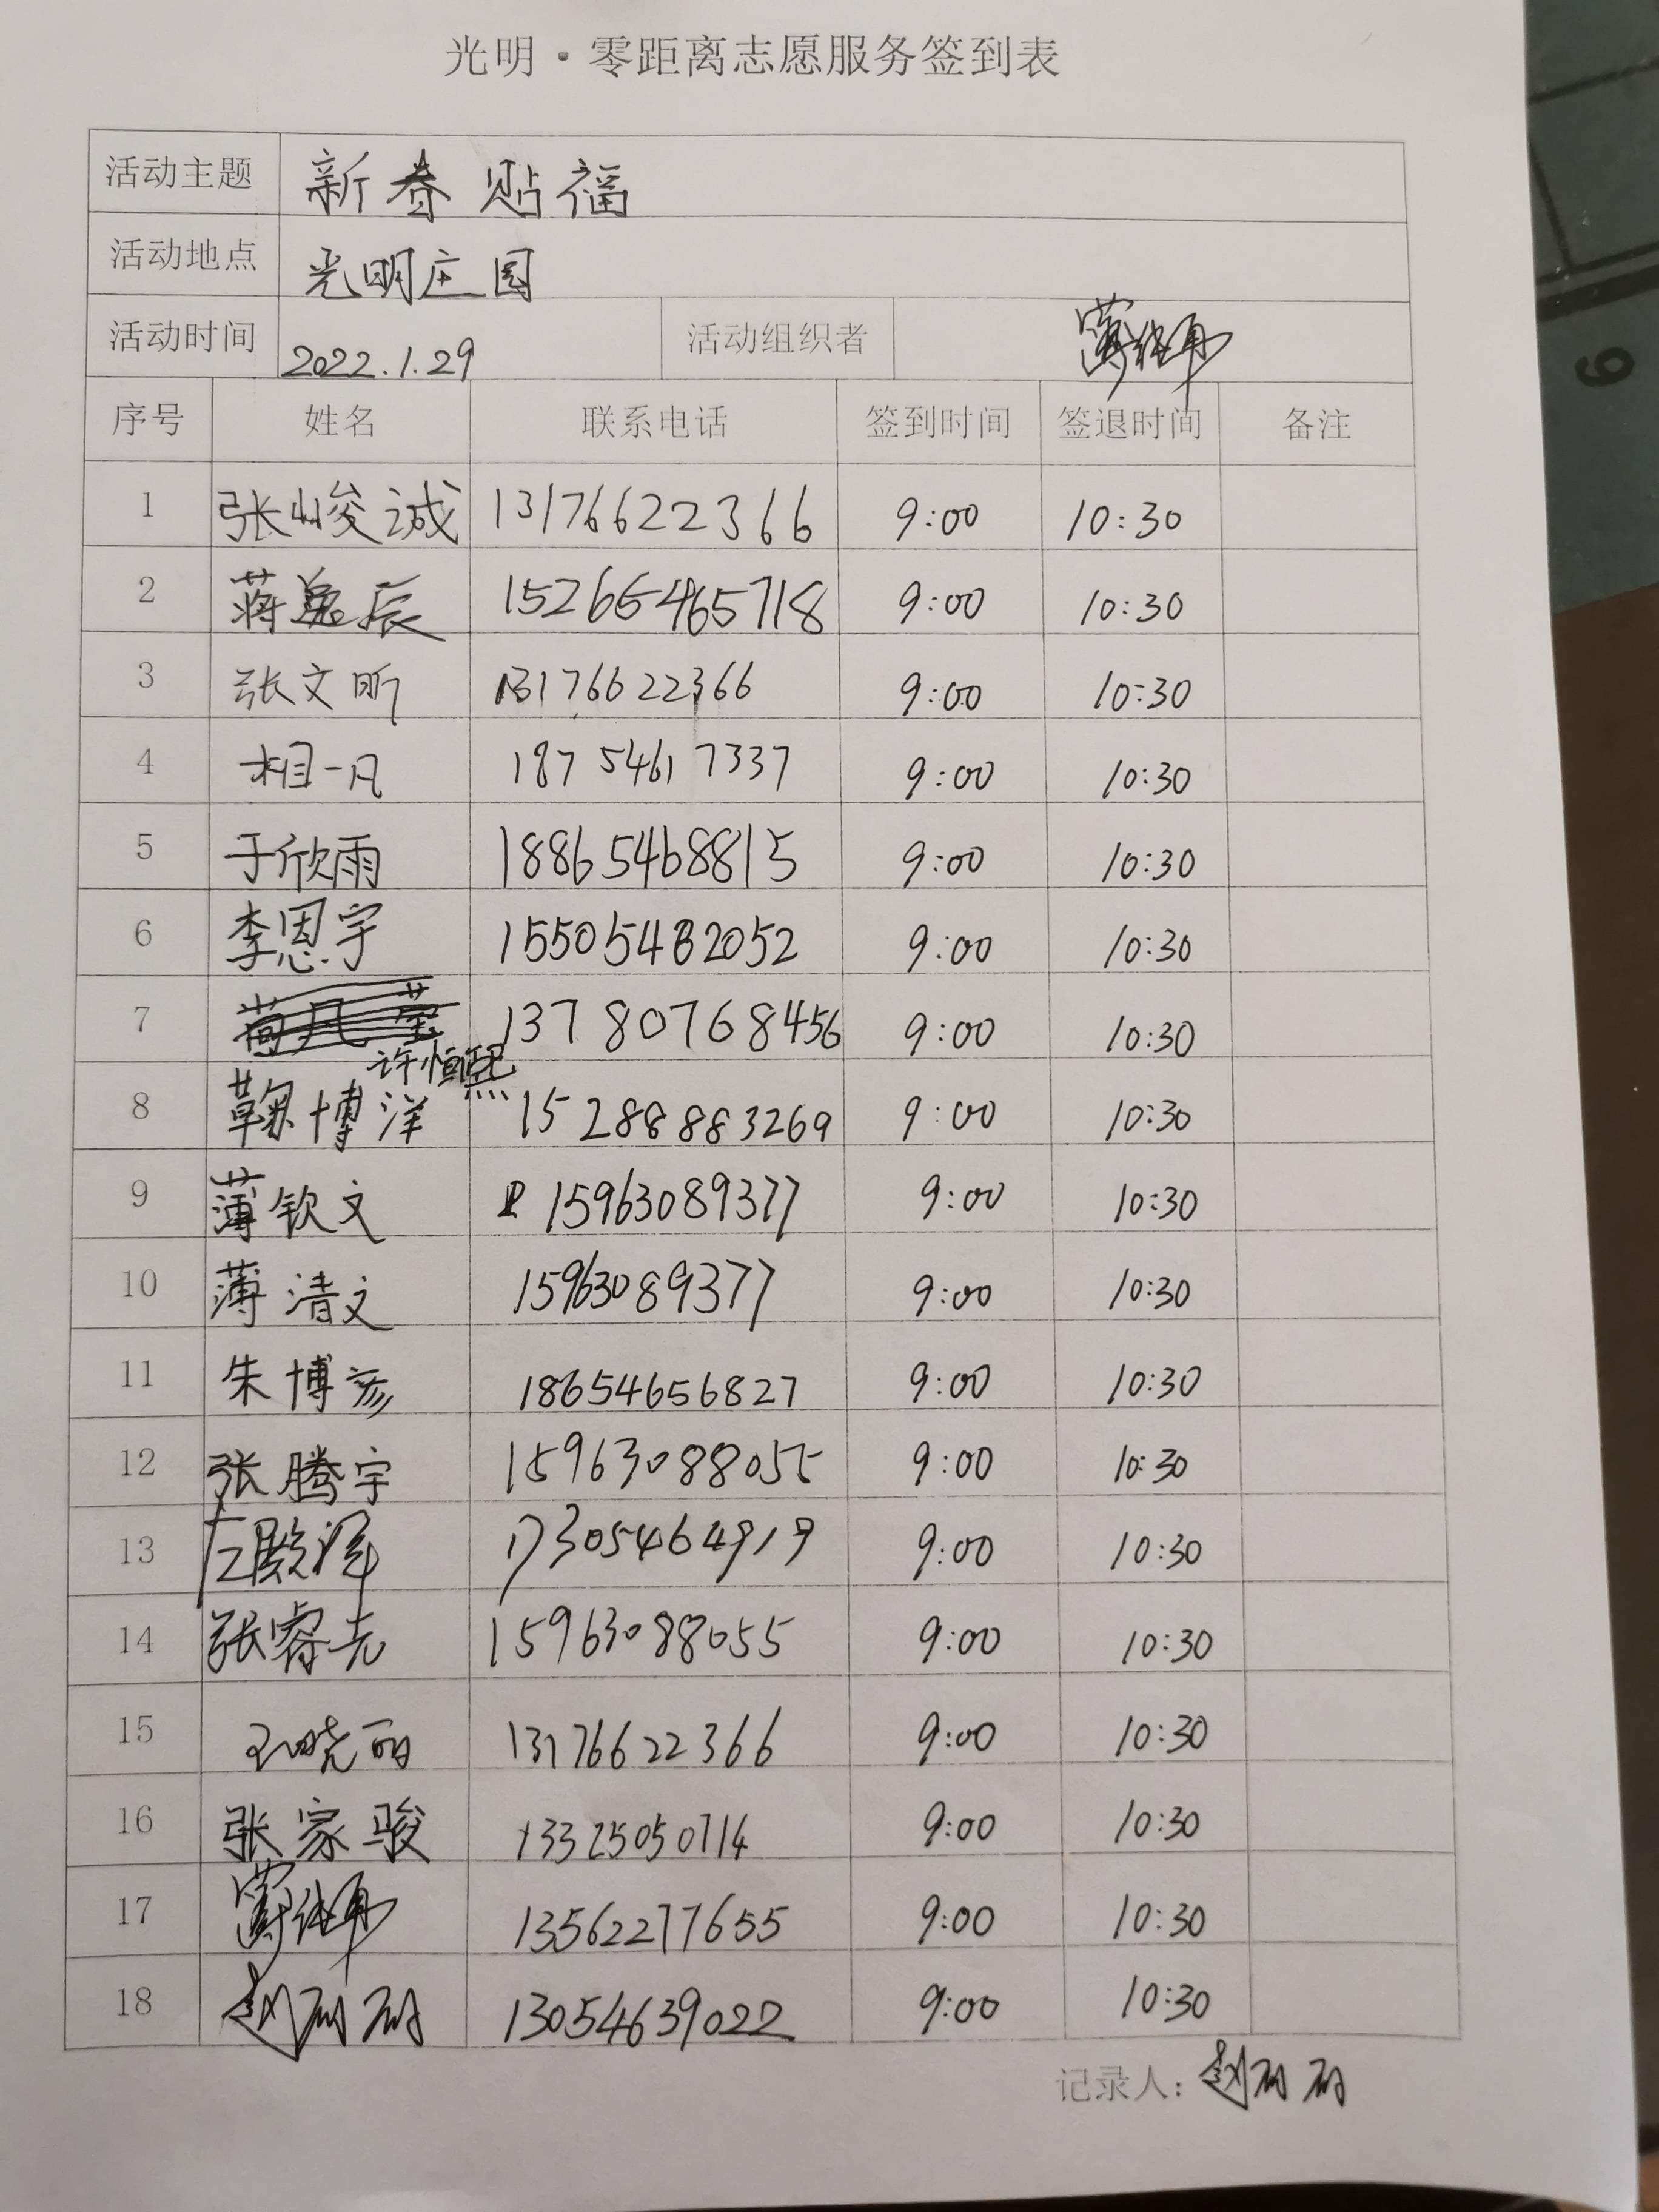 光明·零距离志愿服务签到表
活动主题 新春贴福
活动地点 光明庄园
活动时间 2022.1.29 活动组织者
序号 姓名 联系电话 签到时间 签退时间 备注
1 张峻诚 13176622366 9:00 10:30
2 蒋逸辰 15266465718 9:00 10:30
3 张文昕 13176622366 9:00 10:30
4 相一凡 18754617337 9:00 10:30
5 于欣雨 18865468815 9:00 10:30
6 李恩宇 15505482052 9:00 10:30
7 许恒熙 13780768456 9:00 10:30
8 鞠博洋 15288883269 9:00 10:30
9 薄钦文 15963089377 9:00 10:30
10 薄清文 15963089377 9:00 10:30
11 朱博彦 18654656827 9:00 10:30
12 张腾宇 15963088055 9:00 10:30
13 17305464919 9:00 10:30
14 张睿尧 15963088055 9:00 10:30
15 晓丽 13176622366 9:00 10:30
16 张家骏 13325050714 9:00 10:30
17 13562277655 9:00 10:30
18 赵丽丽 13054639022 9:00 10:30
记录人：赵丽丽
9